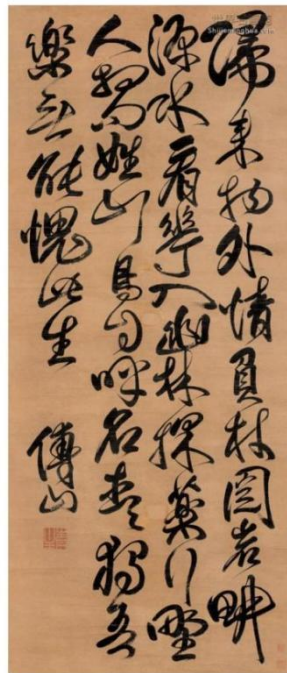 歸來物外情負杖閱岩畊
源水看華入幽林採藥行野
人相問姓山鳥自呼名去去獨吾
樂無能愧此生 傅山